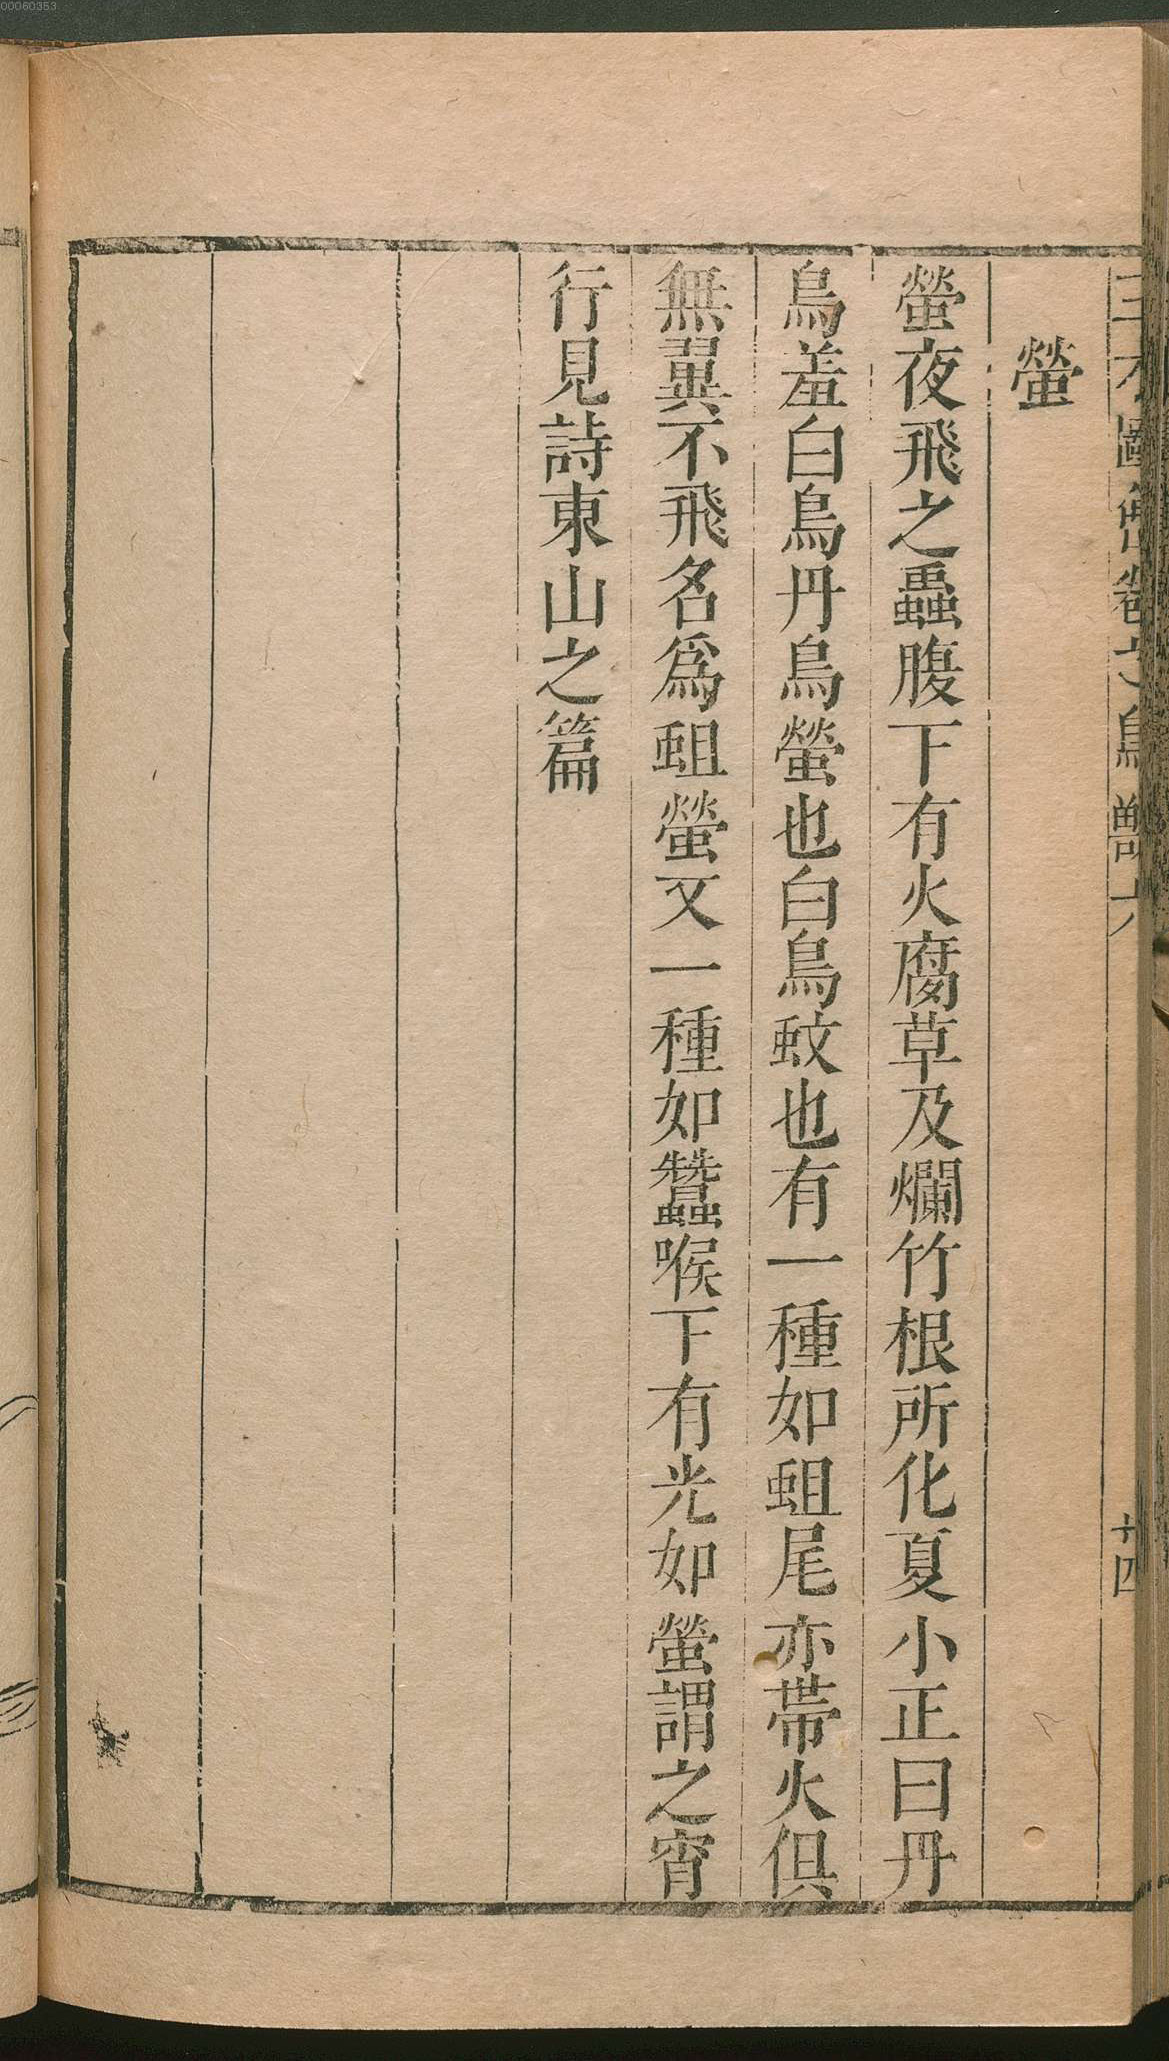 三才圖會卷之鳥獸六
廿四
螢
螢夜飛之蟲腹下有火腐草及爛竹根所化夏小正曰丹
鳥羞白鳥丹鳥螢也白鳥蚊也有一種如蛆尾亦帶火俱
無翼不飛名爲蛆螢又一種如蠶喉下有光如螢謂之宵
行見詩東山之篇
00060353